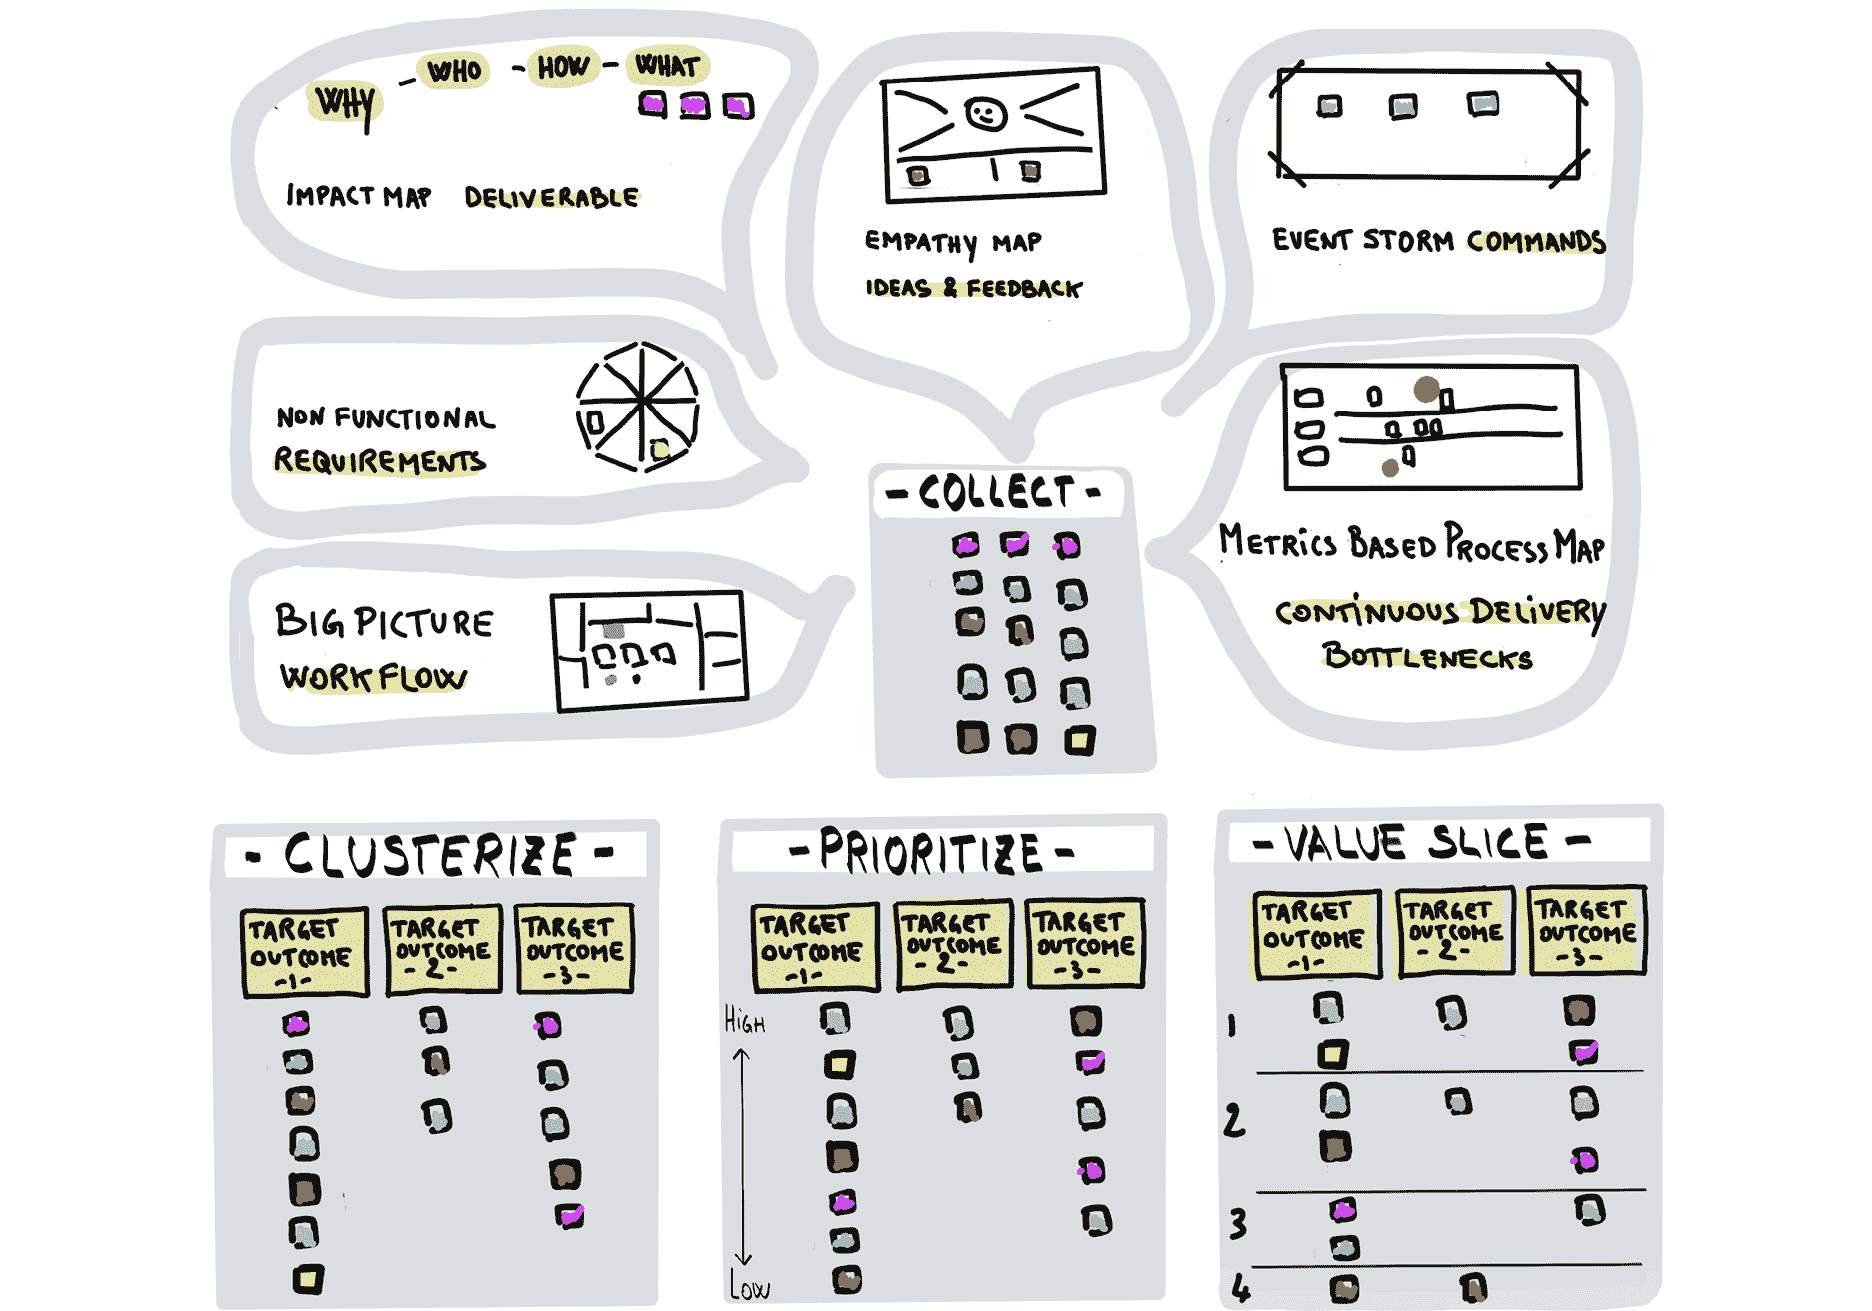 WHY - WHO - HOW - WHAT
IMPACT MAP DELIVERABLE
EMPATHY MAP
IDEAS & FEEDBACK
EVENT STORM COMMANDS
NON FUNCTIONAL
REQUIREMENTS
BIG PICTURE
WORKFLOW
- COLLECT -
METRICS BASED PROCESS MAP
CONTINUOUS DELIVERY
BOTTLENECKS
- CLUSTERIZE -
TARGET
OUTCOME
-1-
TARGET
OUTCOME
-2-
TARGET
OUTCOME
-3-
- PRIORITIZE -
TARGET
OUTCOME
-1-
TARGET
OUTCOME
-2-
TARGET
OUTCOME
-3-
HIGH
LOW
- VALUE SLICE -
TARGET
OUTCOME
-1-
TARGET
OUTCOME
-2-
TARGET
OUTCOME
-3-
1
2
3
4